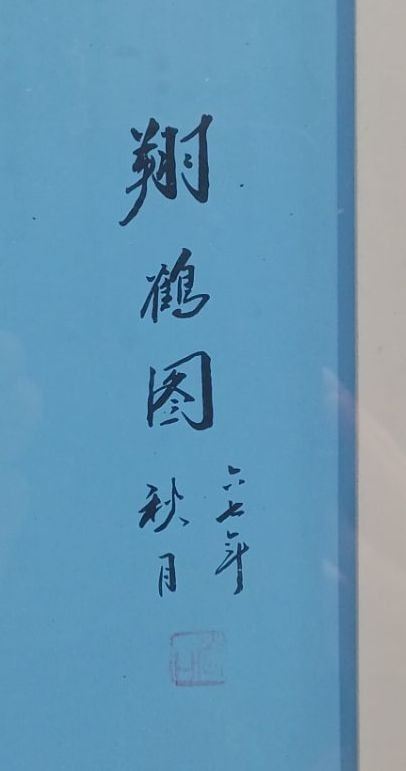 翔鹤图
六七年
秋月